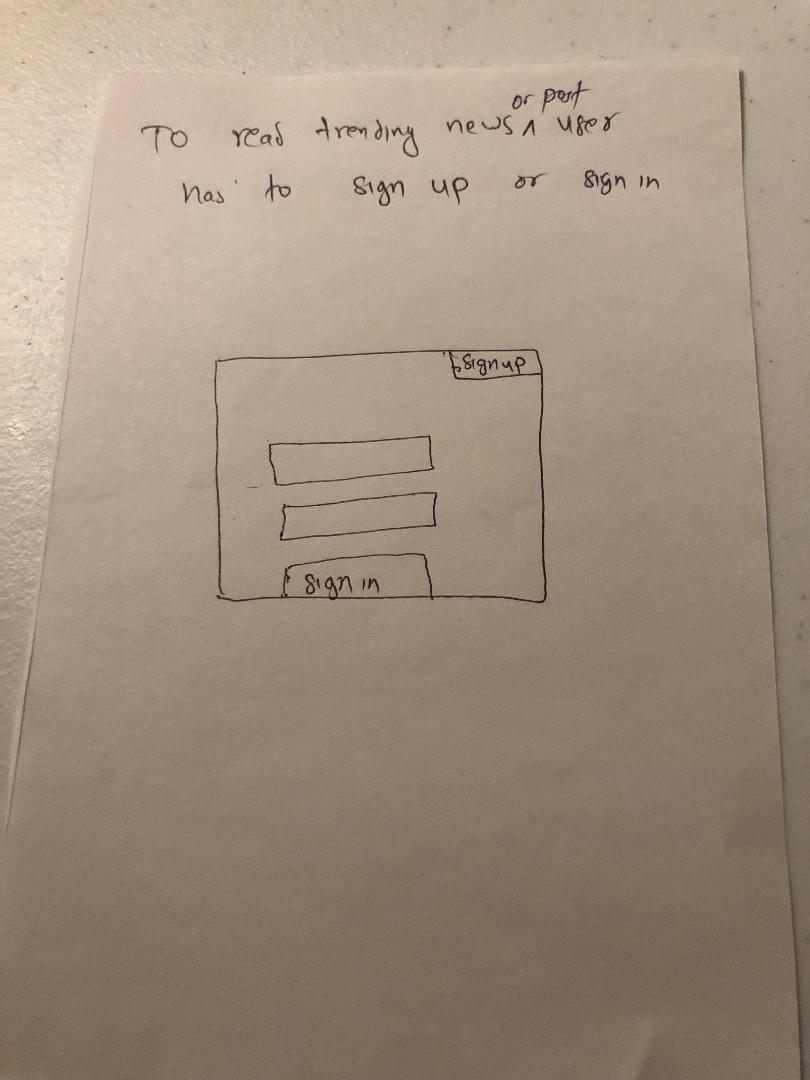 To read trending news or post user
has to sign up or sign in
sign up
sign in